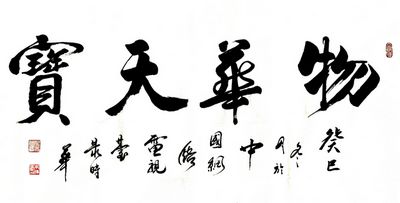 物華天寶
癸巳冬月於中國網絡電視臺裴時華